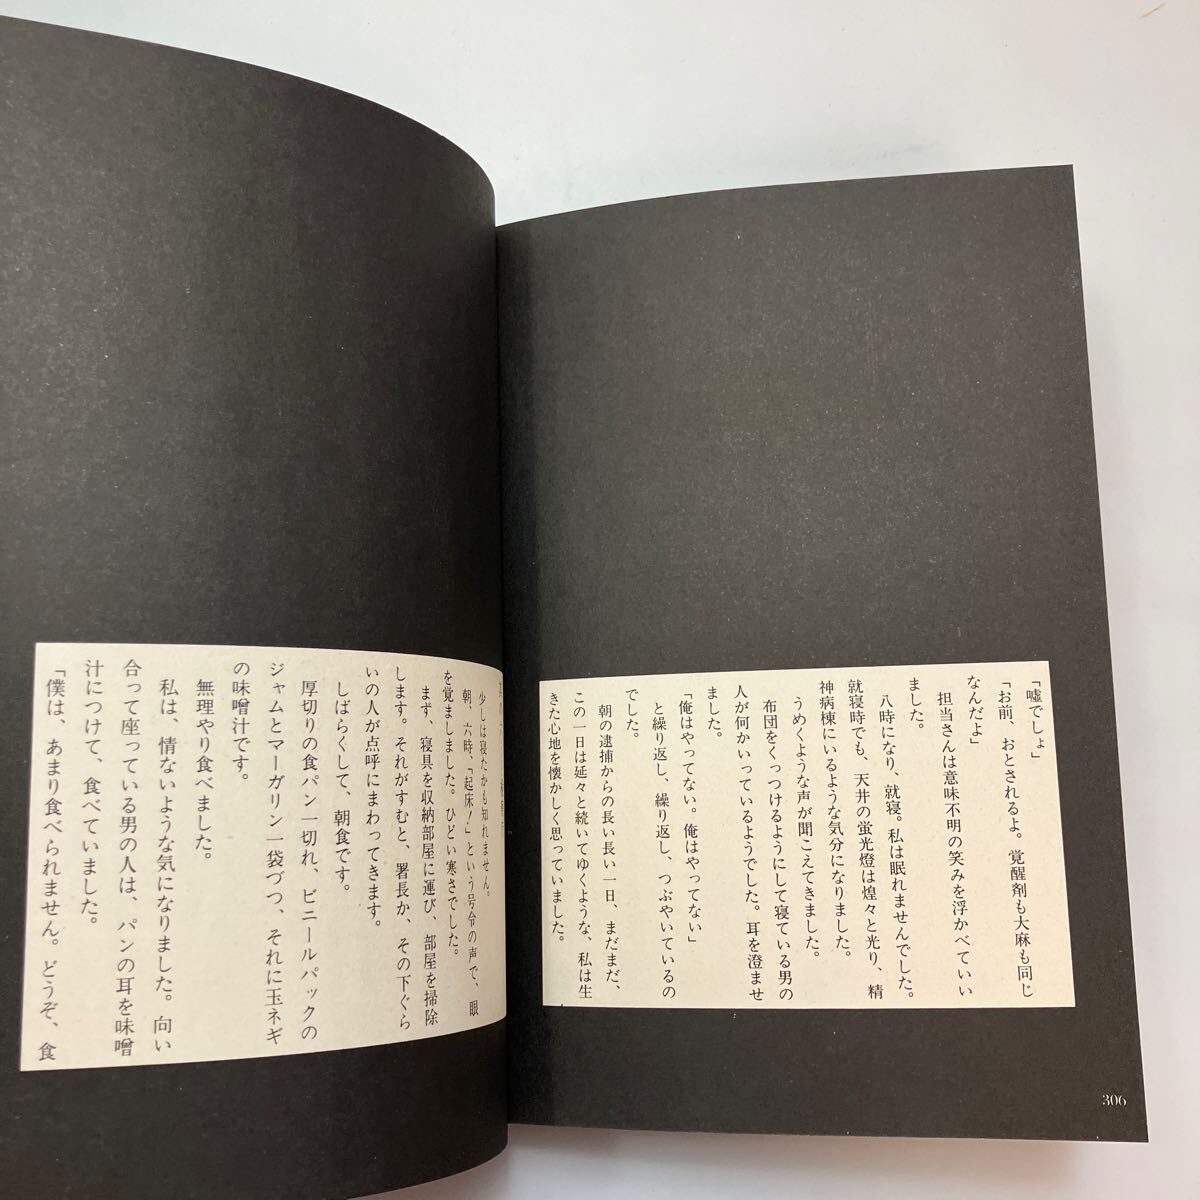 「嘘でしょ」
「お前、おとされるよ。覚醒剤も大麻も同じ
なんだよ」
担当さんは意味不明の笑みを浮かべてい
ました。
八時になり、就寝。私は眠れませんでした。
就寝時でも、天井の蛍光燈は煌々と光り、精
神病棟にいるような気分になりました。
うめくような声が聞こえてきました。
布団をくっつけるようにして寝ている男の
人が何かいっているようでした。耳を澄ませ
ました。
「俺はやってない。俺はやってない」
と繰り返し、繰り返し、つぶやいているの
でした。
朝の逮捕からの長い長い一日、まだまだ、
この一日は延々と続いてゆくような、私は生
きた心地を懐かしく思っていました。
306
少しは寝たかも知れません。
朝、六時、「起床！」という号令の声で、眼
を覚ましました。ひどい寒さでした。
まず、寝具を収納部屋に運び、部屋を掃除
します。それがすむと、署長か、その下ぐら
いの人が点呼にまわってきます。
しばらくして、朝食です。
厚切りの食パン一切れ、ビニールパックの
ジャムとマーガリン一袋づつ、それに玉ネギ
の味噌汁です。
無理やり食べました。
私は、情ないような気になりました。向い
合って座っている男の人は、パンの耳を味噌
汁につけて、食べていました。
「僕は、あまり食べられません。どうぞ、食